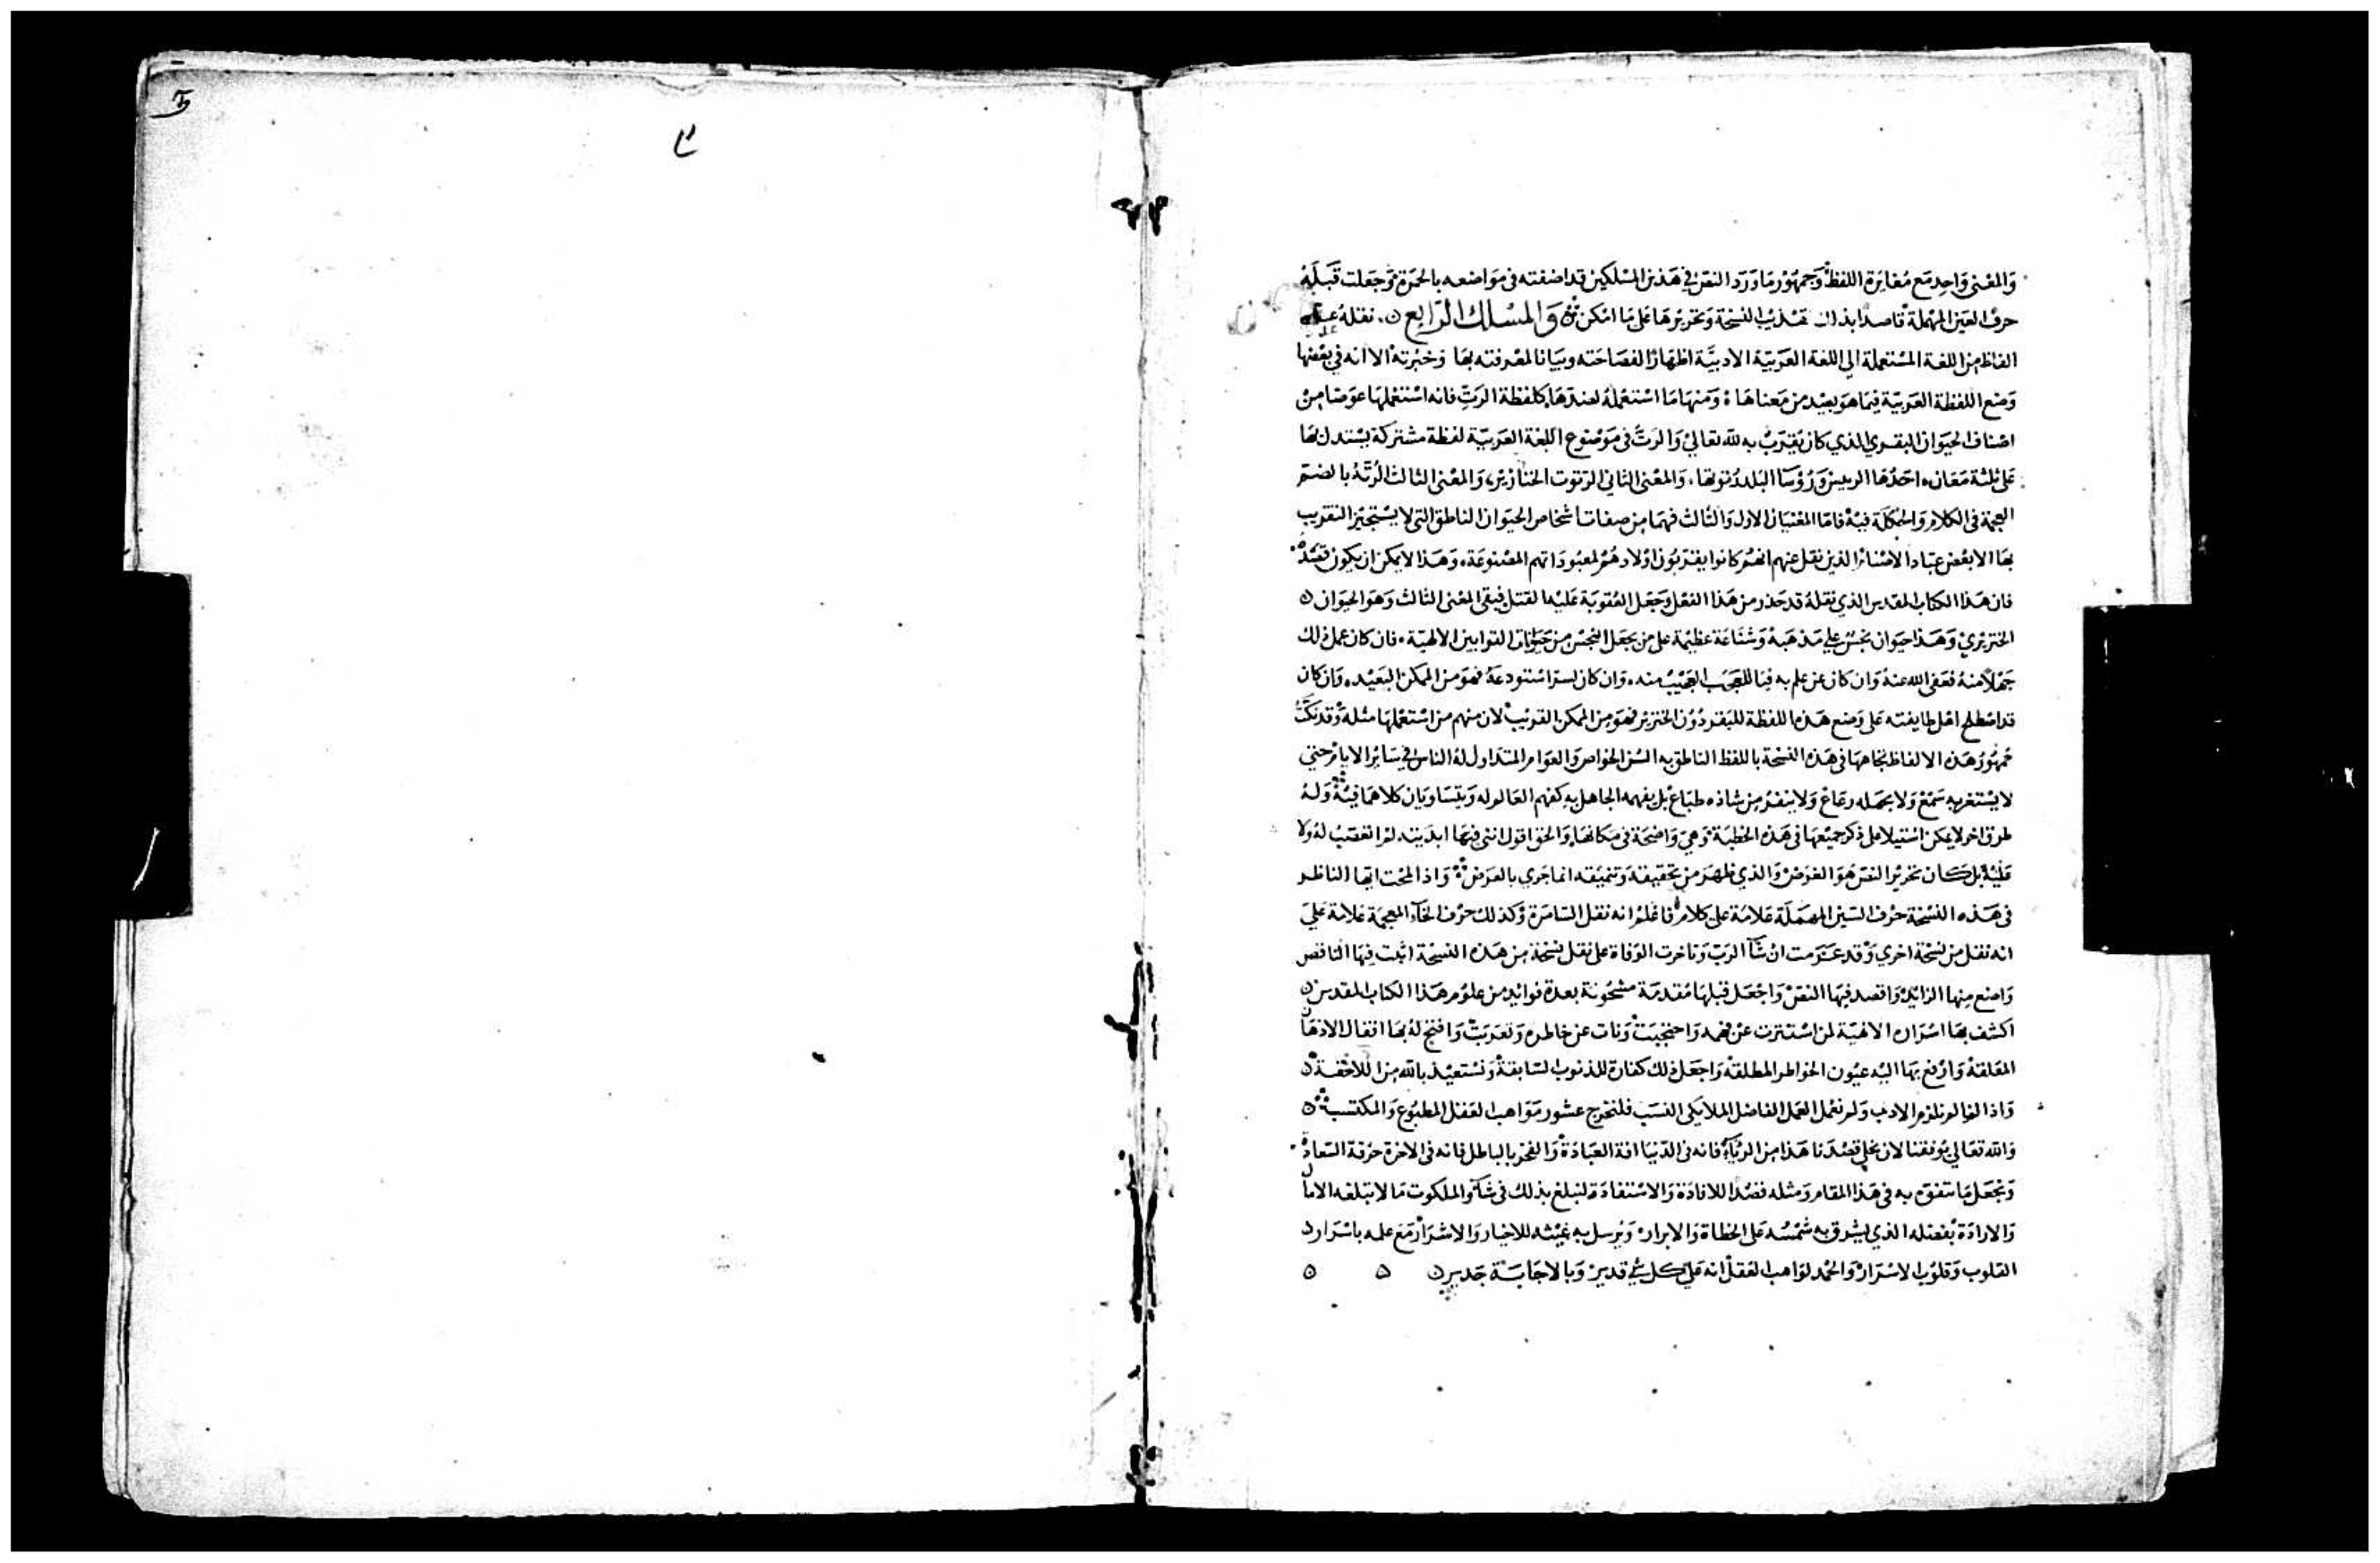 والمعنى واحد مع مغايرة اللفظ وجمهور ما ورد النص في هذين المسلكين قد اضفته في مواضعه بالحمرة وجعلت قبله
حرف العين المهملة قاصدا بذلك تهذيب النسخة وتحريرها على ما امكن والمسلك الرابع نقله
الفاظ من اللغة المستعملة الي اللغة العربية الادبية اظهارا لفصاحته وبيانا لمعرفته بها وخبرته الا انه في بعضها
وضع اللفظة العربية فيما هو بعيد من معناها ومنها ما استعمله لعندها كلفظة الرت فانه استعملها عوضا من
اصناف الحيوان البقري الذي كان يقترب به لله تعالي والرت في موضوع اللغة العربية لفظة مشتركة يستدل بها
علي ثلثة معان احدها الرييس ورؤسا البلد رتوتها والمعنى الثاني الرتوت الخنازير والمعنى الثالث الرتة بالضم
العجمة في الكلام والحكلة فيه فاما المعنيان الاول والثالث فهما من صفات اشخاص الحيوان الناطق التي لا يستجيز التقريب
بها الا بعض عباد الاصنام الذين نقل عنهم انهم كانوا يقربون اولادهم لمعبوداتهم المصنوعة وهذا لا يمكن ان يكون قصده
فان هذا الكتاب المقدس الذي نقله قد حذر من هذا الفعل وجعل العقوبة عليه القتل فبقي المعنى الثالث وهو الحيوان
الخنزيري وهذا حيوان نجس علي مذهبه وشناعة عظيمة على من يجعل النجس من حيوانات القرابين الالهية فان كان عمل ذلك
جهلا منه فعفى الله عنه وان كان عن علم به فيا للعجب العجيب منه وان كان لسر استودعه فهو من الممكن البعيد وان كان
قد اصطلح اهل طايفته على وضع هذه اللفظة للبقر دون الخنزير فهو من الممكن القريب لان منهم من استعملها مثله وقد نكت
جمهور هذه الالفاظ تجاهها في هذه النسخة باللفظ الناطق به السن الخواص والعوام المتداول له الناس في ساير الايام حتي
لا يستغربه سمع ولا يجهله رعاع ولا ينفر من شاذه طباع بل يفهمه الجاهل به كفهم العالم له ويتساويان كلاهما فيه وله
طرق اخر لا يمكن استيلا على ذكر جميعها في هذه الخطبة وهي واضحة في مكانها والحق اقول انني فيما ابديته لم اتعصب له ولا
عليه بل كان تحرير النص هو الغرض والذي ظهر من تحقيقه وتنميقه انما جري بالعرض واذا لمحت ايها الناظر
في هذه النسخة حرف السين المهملة علامة علي كلام فاعلم انه نقل السامرة وكذلك حرف الخاء المعجمة علامة علي
انه نقل من نسخة اخري وقد عزمت ان شا الرب وتاخرت الوفاة على نقل نسخة من هذه النسخة اثبت فيها الناقص
واضع منها الزايد واقصد فيها النص واجعل قبلها مقدمة مشحونة بعدة فوايد من علوم هذا الكتاب المقدس
اكشف بها اسراره الالهية لمن استترت عن فهمه واحتجبت ونات عن خاطره وتعربت وافتح له بها اقفال الاذهان
المغلقة وارفع بها اليه عيون الخواطر المطلقة واجعل ذلك كفارة للذنوب السابقة ونستعيذ بالله من اللاحقة
واذا لم نلزم الادب ولم نعمل العمل الفاضل الملايكي النسب فلنخرج عشور مواهب العقل المطبوع والمكتسب
والله تعالي يوفقنا لان نخلي قصدنا هذا من الرياء فانه في الدنيا افة العبادة والفخر بالباطل فانه في الاخرة حرفة السعادة
ونجعل ما نتفوه به في هذا المقام ومثله قصدا للافادة والاستفادة لنبلغ بذلك في شاو الملكوت ما لا تبلغه الامال
والارادة بفضله الذي يشرق به شمسه على الخطاة والابرار ويرسل به غيثه للاخيار والاشرار مع علمه باسرار
القلوب وقلوب الاسرار والحمد لواهب العقل انه علي كل شي قدير وبالاجابة جدير